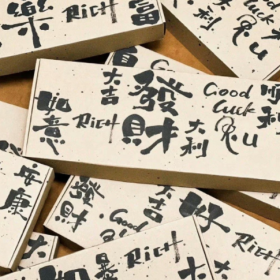 樂 RICH 富
大吉
發財
Good Luck
順利
如意 RICH
大吉
大利
U
安康
發財
大吉
Good
好
RICH
大